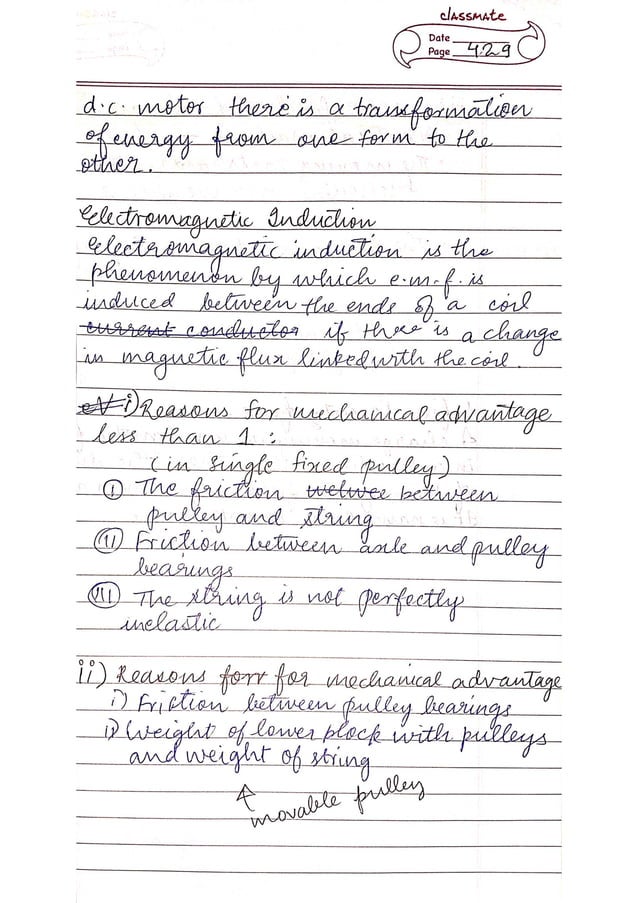 classmate
Date
Page 429
d.c. motor there is a transformation
of energy from one form to the
other.
Electromagnetic Induction
Electromagnetic induction is the
phenomenon by which e.m.f. is
induced between the ends of a coil
current conductor if there is a change
in magnetic flux linked with the coil.
i) Reasons for mechanical advantage
less than 1 :
(in single fixed pulley)
(I) The friction between
pulley and string
(II) Friction between axle and pulley
bearings
(VII) The string is not perfectly
inelastic
ii) Reasons forr for mechanical advantage
i) Friction between pulley bearings
ii) Weight of lower plock with pulleys
and weight of string
↑
movable pulley